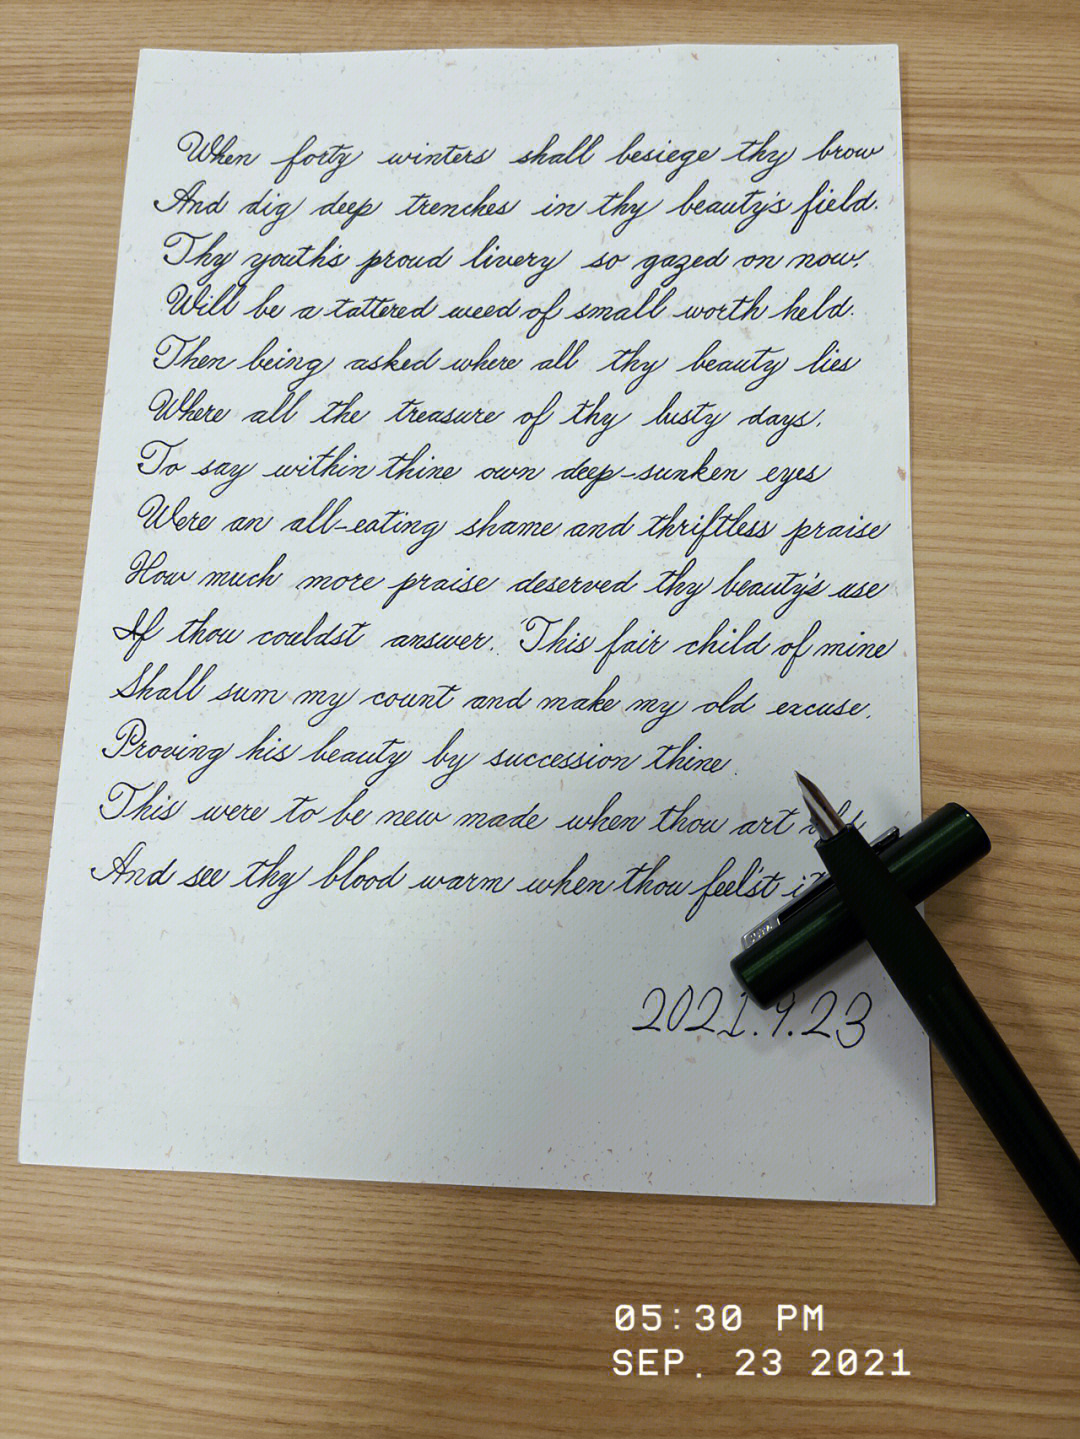 When forty winters shall besiege thy brow
And dig deep trenches in thy beauty's field.
Thy youth's proud livery so gazed on now.
Will be a tattered weed of small worth held.
Then being asked where all thy beauty lies
Where all the treasure of thy lusty days.
To say within thine own deep-sunken eyes
Were an all-eating shame and thriftless praise
How much more praise deserved thy beauty's use
If thou couldst answer. 'This fair child of mine
Shall sum my count and make my old excuse.
Proving his beauty by succession thine.
This were to be new made when thou art
And see thy blood warm when thou feel'st it
2021.9.23
05:30 PM
SEP. 23 2021